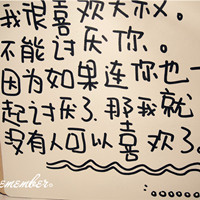 我很喜欢大杈。
不能讨厌你。
因为如果连你也一
起讨厌了.那我就
没有人可以喜欢了。
emember